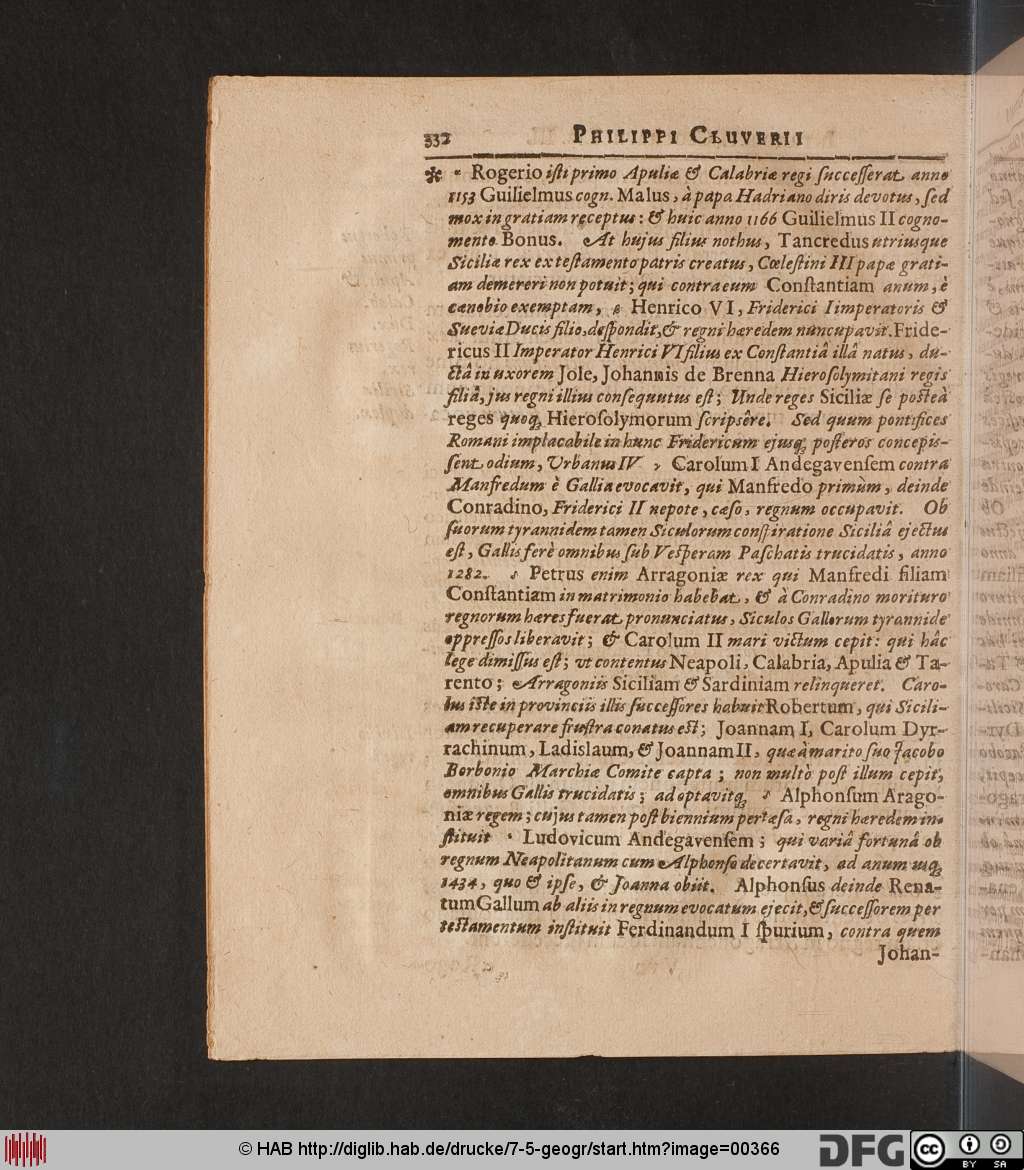 332 PHILIPPI CLUVERII
* Rogerio iſti primo Apuliæ & Calabriæ regi ſucceſſerat anno
1153 Guilielmus cogn. Malus, à papa Hadriano diris devotus, ſed
mox in gratiam receptus: & huic anno 1166 Guilielmus II cogno-
mento Bonus. At hujus filius nothus, Tancredus utriusque
Siciliæ rex ex teſtamento patris creatus, Cœleſtini III papæ grati-
am demereri non potuit; qui contra eum Conſtantiam anum, è
cænobio exemptam, Henrico VI, Friderici I imperatoris &
Sueviæ Ducis filio, deſpondit, & regni hæredem nuncupavit. Fride-
ricus II Imperator Henrici VI filius ex Conſtantiâ illâ natus, du-
ctâ in uxorem Jole, Johannis de Brenna Hieroſolymitani regis
filiâ, jus regni illius conſequutus eſt; Unde reges Siciliæ ſe poſteà
reges quoq; Hieroſolymorum ſcripsêre. Sed quum pontifices
Romani implacabile in hunc Fridericum ejusq; poſteros concepis-
ſent odium, Urbanus IV, Carolum I Andegavenſem contra
Manfredum è Gallia evocavit, qui Manfredo primùm, deinde
Conradino, Friderici II nepote, cæſo, regnum occupavit. Ob
ſuorum tyrannidem tamen Siculorum conſpiratione Siciliâ ejectus
eſt, Gallis ferè omnibus ſub Veſperam Paſchatis trucidatis, anno
1282. Petrus enim Arragoniæ rex qui Manfredi filiam
Conſtantiam in matrimonio habebat, & à Conradino morituro
regnorum hæres fuerat pronunciatus, Siculos Gallorum tyrannide
oppreſſos liberavit; & Carolum II mari victum cepit: qui hâc
lege dimiſſus eſt; ut contentus Neapoli, Calabria, Apulia & Ta-
rento; Arragoniis Siciliam & Sardiniam relinqueret. Caro-
lus iſte in provinciis illis ſucceſſores habuit Robertum, qui Sicili-
am recuperare fruſtra conatus eſt; Joannam I, Carolum Dyr-
rachinum, Ladislaum, & Joannam II, quæ à marito ſuo Jacobo
Borbonio Marchiæ Comite capta; non multò poſt illum cepit,
omnibus Gallis trucidatis; adoptavitq; Alphonſum Arago-
niæ regem; cujus tamen poſt biennium pertæſa, regni hæredem in-
ſtituit Ludovicum Andegavenſem; qui variâ fortunâ ob
regnum Neapolitanum cum Alphonſo decertavit, ad anum uſq;
1434, quo & ipſe, & Joanna obiit. Alphonſus deinde Rena-
tum Gallum ab aliis in regnum evocatum ejecit, & ſucceſſorem per
teſtamentum inſtituit Ferdinandum I ſpurium, contra quem
Johan-
© HAB http://diglib.hab.de/drucke/7-5-geogr/start.htm?image=00366
DFG
cc BY SA